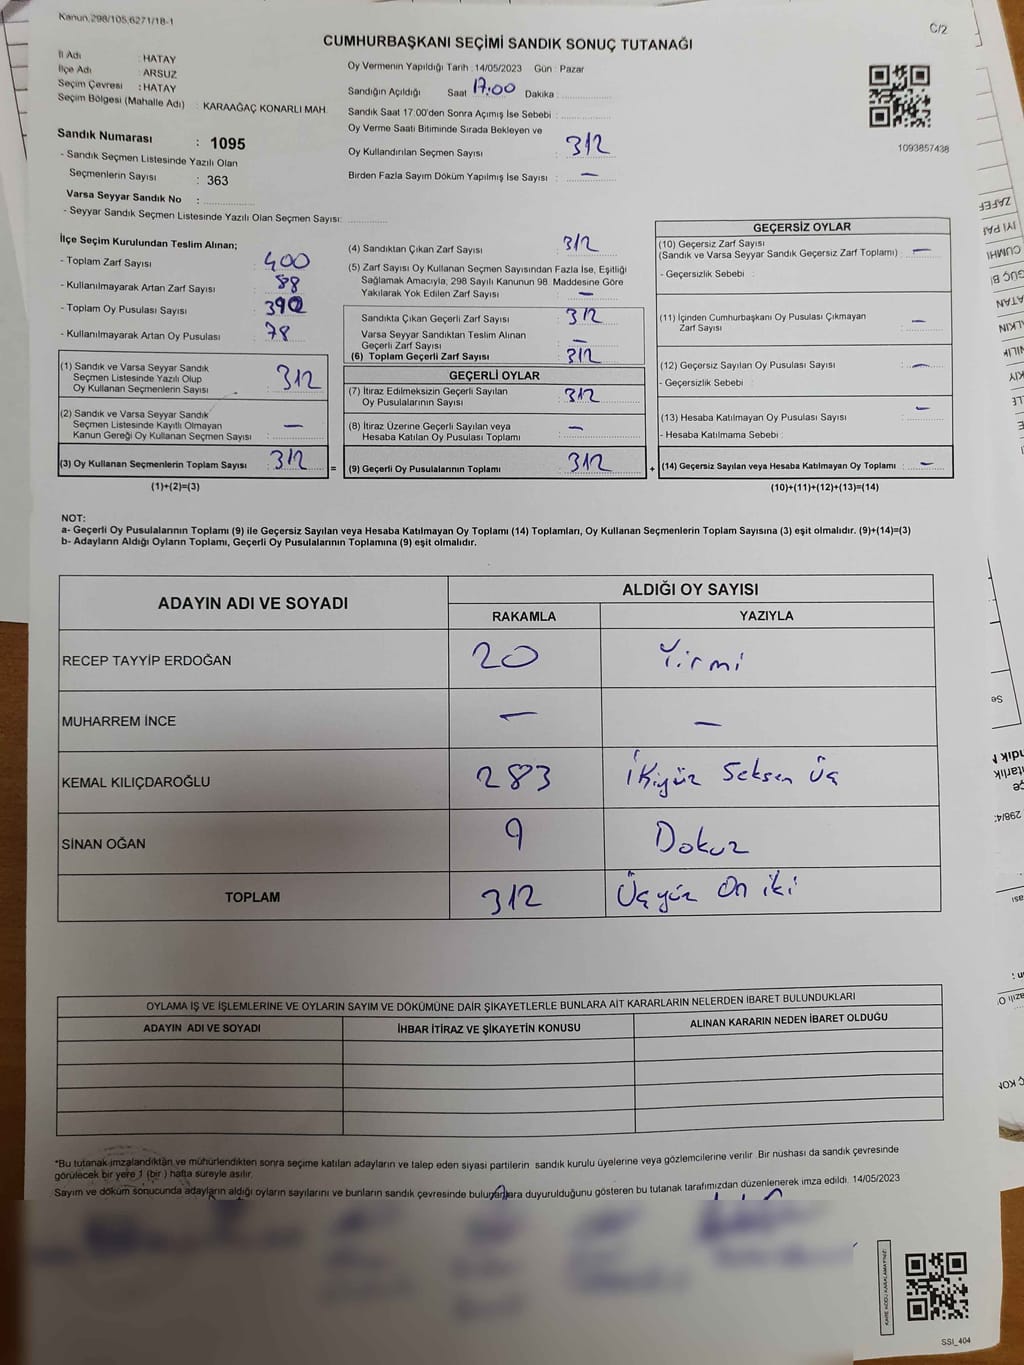 Kanun,298/105,6271/18-1
C/2
CUMHURBAŞKANI SEÇİMİ SANDIK SONUÇ TUTANAĞI
İl Adı : HATAY
İlçe Adı : ARSUZ
Seçim Çevresi : HATAY
Seçim Bölgesi (Mahalle Adı) : KARAAĞAÇ KONARLI MAH.
Sandık Numarası : 1095
- Sandık Seçmen Listesinde Yazılı Olan
Seçmenlerin Sayısı : 363
Varsa Seyyar Sandık No :
- Seyyar Sandık Seçmen Listesinde Yazılı Olan Seçmen Sayısı:
Oy Vermenin Yapıldığı Tarih : 14/05/2023 Gün : Pazar
Sandığın Açıldığı Saat 17.00 Dakika :
Sandık Saat 17:00'den Sonra Açımış İse Sebebi :
Oy Verme Saati Bitiminde Sırada Bekleyen ve
Oy Kullandırılan Seçmen Sayısı : 312
Birden Fazla Sayım Döküm Yapılmış İse Sayısı : —
1093857438
İlçe Seçim Kurulundan Teslim Alınan;
- Toplam Zarf Sayısı : 400
- Kullanılmayarak Artan Zarf Sayısı : 88
- Toplam Oy Pusulası Sayısı : 390
- Kullanılmayarak Artan Oy Pusulası : 78
(1) Sandık ve Varsa Seyyar Sandık
Seçmen Listesinde Yazılı Olup
Oy Kullanan Seçmenlerin Sayısı : 312
(2) Sandık ve Varsa Seyyar Sandık
Seçmen Listesinde Kayıtlı Olmayan
Kanun Gereği Oy Kullanan Seçmen Sayısı : —
(3) Oy Kullanan Seçmenlerin Toplam Sayısı : 312 =
(1)+(2)=(3)
(4) Sandıktan Çıkan Zarf Sayısı : 312
(5) Zarf Sayısı Oy Kullanan Seçmen Sayısından Fazla İse, Eşitliği
Sağlamak Amacıyla, 298 Sayılı Kanunun 98. Maddesine Göre
Yakılarak Yok Edilen Zarf Sayısı : —
Sandıkta Çıkan Geçerli Zarf Sayısı : 312
Varsa Seyyar Sandıktan Teslim Alınan
Geçerli Zarf Sayısı : —
(6) Toplam Geçerli Zarf Sayısı : 312
GEÇERLİ OYLAR
(7) İtiraz Edilmeksizin Geçerli Sayılan
Oy Pusulalarının Sayısı : 312
(8) İtiraz Üzerine Geçerli Sayılan veya
Hesaba Katılan Oy Pusulası Toplamı : —
(9) Geçerli Oy Pusulalarının Toplamı : 312 +
GEÇERSİZ OYLAR
(10) Geçersiz Zarf Sayısı
(Sandık ve Varsa Seyyar Sandık Geçersiz Zarf Toplamı) : —
- Geçersizlik Sebebi :
(11) İçinden Cumhurbaşkanı Oy Pusulası Çıkmayan
Zarf Sayısı : —
(12) Geçersiz Sayılan Oy Pusulası Sayısı : —
- Geçersizlik Sebebi :
(13) Hesaba Katılmayan Oy Pusulası Sayısı : —
- Hesaba Katılmama Sebebi :
(14) Geçersiz Sayılan veya Hesaba Katılmayan Oy Toplamı : —
(10)+(11)+(12)+(13)=(14)
NOT:
a- Geçerli Oy Pusulalarının Toplamı (9) ile Geçersiz Sayılan veya Hesaba Katılmayan Oy Toplamı (14) Toplamları, Oy Kullanan Seçmenlerin Toplam Sayısına (3) eşit olmalıdır. (9)+(14)=(3)
b- Adayların Aldığı Oyların Toplamı, Geçerli Oy Pusulalarının Toplamına (9) eşit olmalıdır.
ADAYIN ADI VE SOYADI
ALDIĞI OY SAYISI
RAKAMLA YAZIYLA
RECEP TAYYİP ERDOĞAN 20 Yirmi
MUHARREM İNCE — —
KEMAL KILIÇDAROĞLU 283 İkiyüz Seksen Üç
SİNAN OĞAN 9 Dokuz
TOPLAM 312 Üçyüz On iki
OYLAMA İŞ VE İŞLEMLERİNE VE OYLARIN SAYIM VE DÖKÜMÜNE DAİR ŞİKAYETLERLE BUNLARA AİT KARARLARIN NELERDEN İBARET BULUNDUKLARI
ADAYIN ADI VE SOYADI İHBAR İTİRAZ VE ŞİKAYETİN KONUSU ALINAN KARARIN NEDEN İBARET OLDUĞU
*Bu tutanak imzalandıktan ve mühürlendikten sonra seçime katılan adayların ve talep eden siyasi partilerin sandık kurulu üyelerine veya gözlemcilerine verilir. Bir nüshası da sandık çevresinde
görülecek bir yere 1 (bir ) hafta süreyle asılır.
Sayım ve döküm sonucunda adayların aldığı oyların sayılarını ve bunların sandık çevresinde bulunanlara duyurulduğunu gösteren bu tutanak tarafımızdan düzenlenerek imza edildi. 14/05/2023
KARE KODU KARALAMAYINIZ!
SSI_404